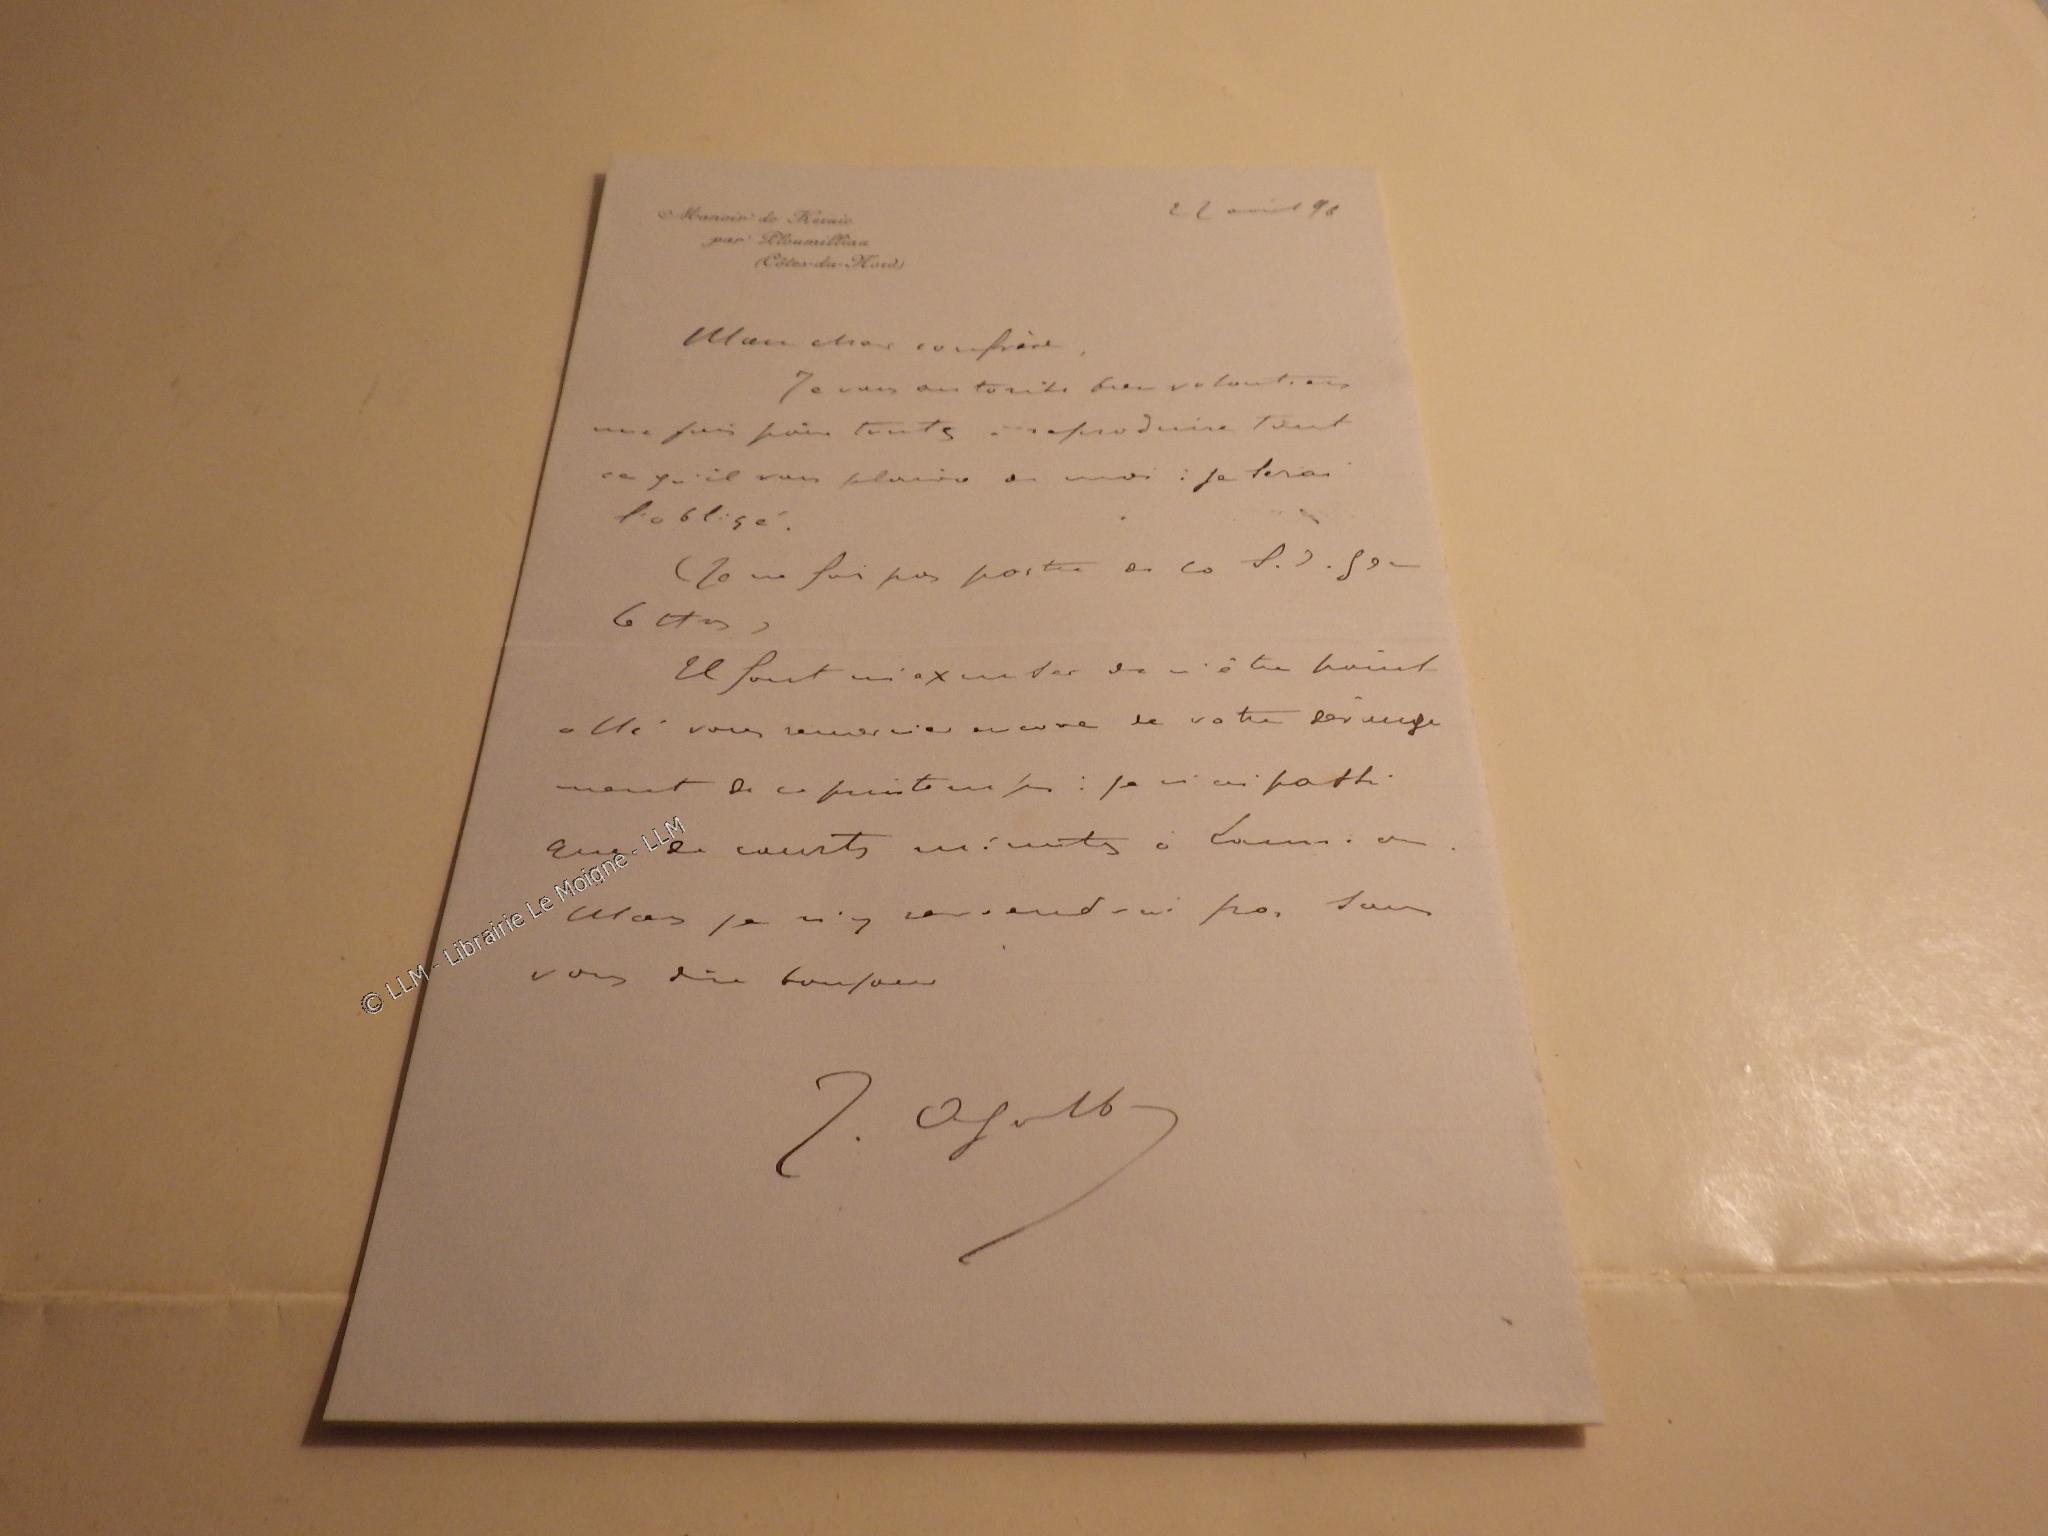 Manoir de Keraic
par Ploumilliau
(Côtes-du-Nord)
22 avril 98
Mon cher confrère,
Je vous autorise bien volontiers
une fois pour toutes à reproduire tout
ce qu'il vous plaira de moi : je serai
l'obligé.
(Je ne fais pas partie de la S. d. g de
lettres)
Il faut m'excuser de n'être point
allé vous remercier encore de votre dérange
ment de ce printemps : je n'ai passé
que de courts minutes à Lannion.
Mais je n'y reviendrai pas sans
vous dire bonjour
J.
© LLM - Librairie Le Moigne - LLM